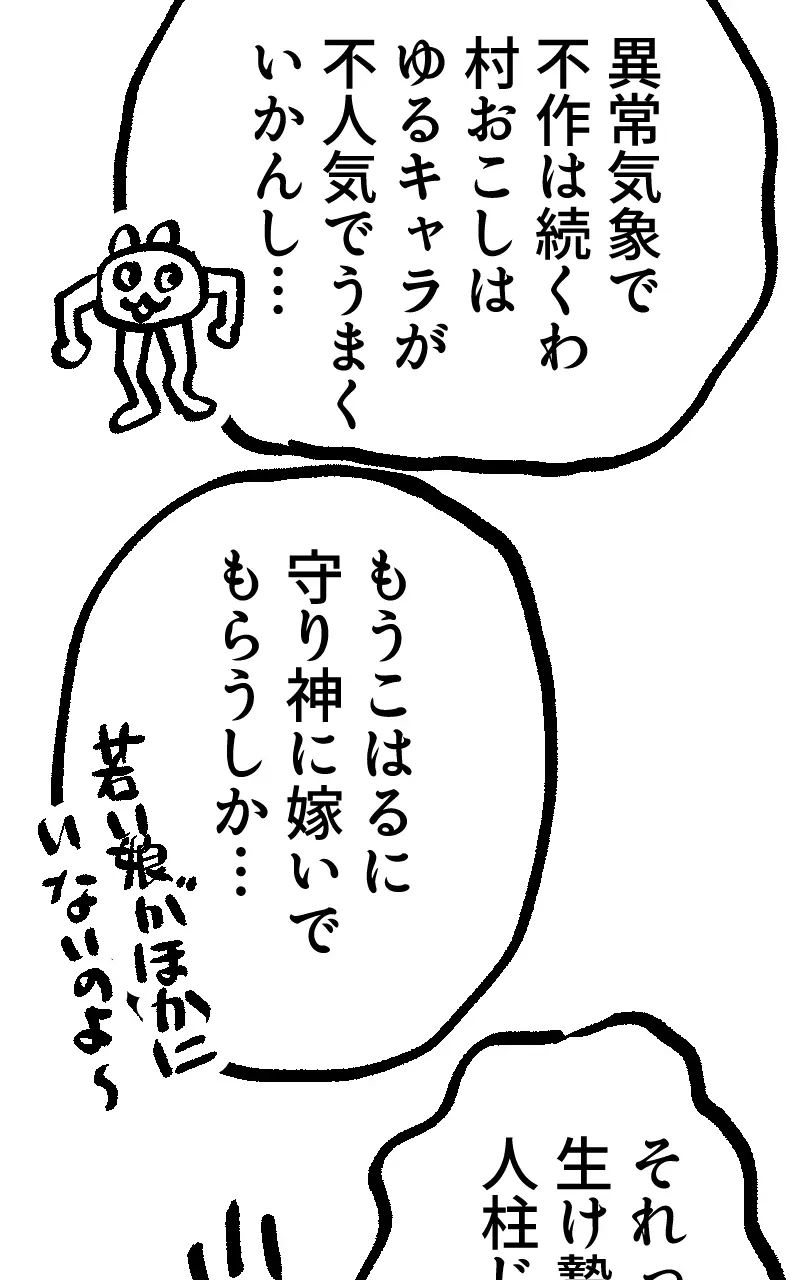 異常気象で
不作は続くわ
村おこしは
ゆるキャラが
不人気でうまく
いかんし…
もうこはるに
守り神に嫁いで
もらうしか…
若い娘がほかに
いないのよ～
それっ
生け贄
人柱じ